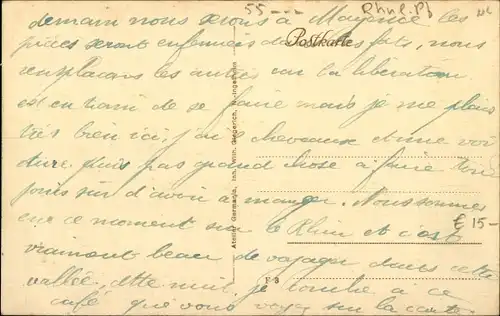 55---
Rhnl.Pf
Postkarte
demain nous serons à Mayence les
pièces seront enfermées dans les forts, nous
remplaçons les autres car la libération
est en train de se faire mais je me plais
très bien ici, j'ai 2 chevaux et une voi
ture puis pas grand chose à faire tou
jours sur d'avoir à manger. Nous sommes
en ce moment sur le Rhin et c'est
vraiment beau de voyager dans cette
vallée, cette nuit je couche à ce
café que vous voyez sur la carte
€ 15-
F 3
Atelier Germania, Inh. Wilh. Giegerich, N.-Ingelheim